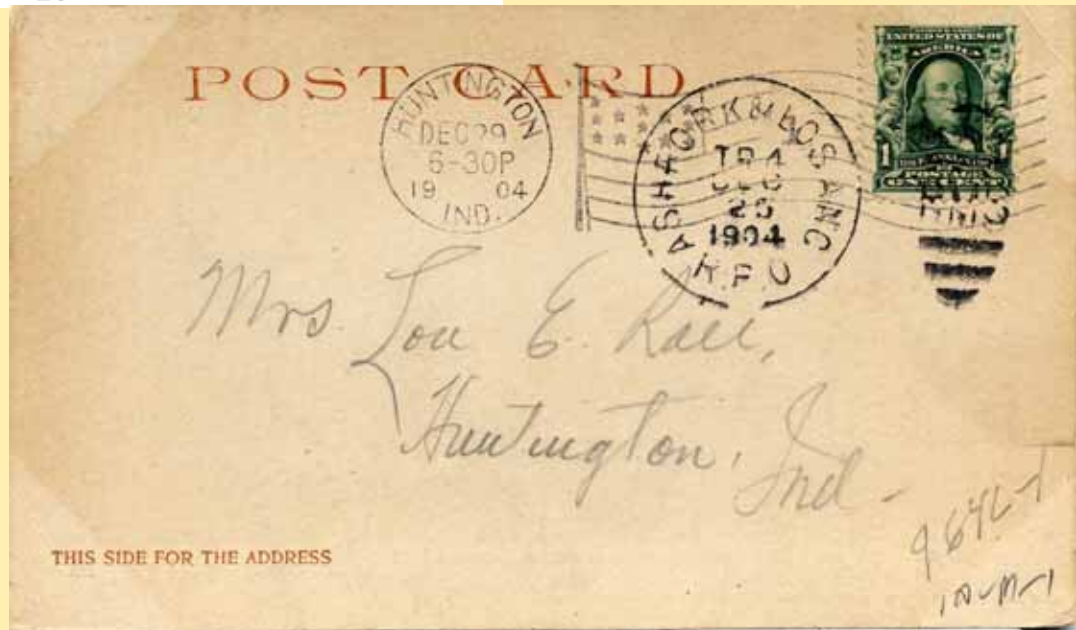 POST CARD
HUNTINGTON
DEC 29
6-30P
19 04
IND.
ASH FORK & LOS ANG
TR 4
DEC
25
1904
R.P.O
UNITED STATES OF
AMERICA
1 1
POSTAGE
ONE CENT
RMS
Mrs. Lou E.
Huntington,
Ind-
THIS SIDE FOR THE ADDRESS